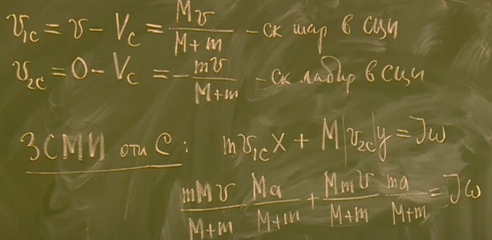 υ₁c = υ − Vc = Mυ/(M+m) – ск шар в сци
υ₂c = 0 − Vc = −mυ/(M+m) – ск лабир в сци
ЗСМИ отн C: mυ₁cx + M|υ₂c|y = Jω
mMυ/(M+m) Ma/(M+m) + Mmυ/(M+m) ma/(M+m) = Jω